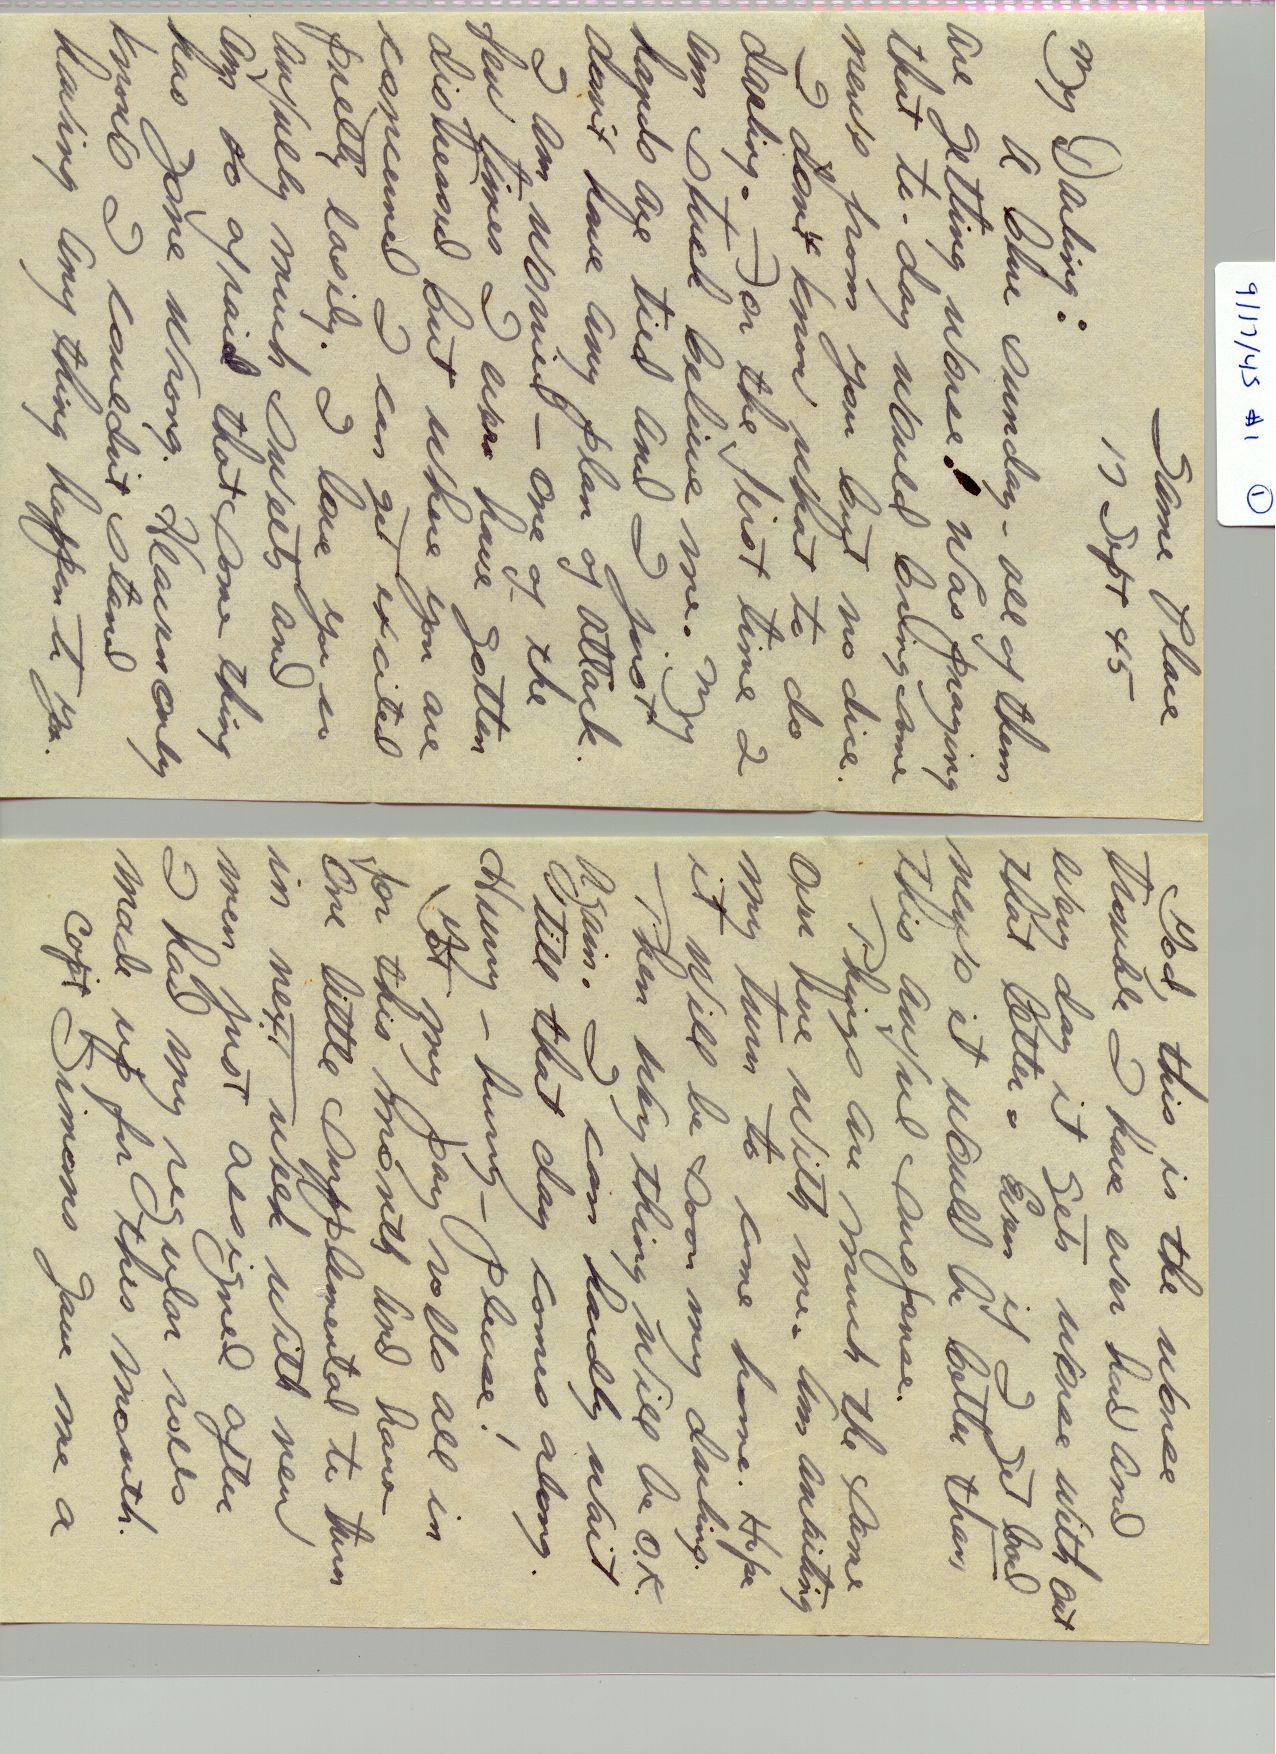 9/17/45 #1 ①
Same Place
17 Sept 45
My Darling:
A blue Sunday - all of them
are getting worse. Was praying
that to-day would bring some
news from you but no dice.
I don't know what to do
darling. For the first time I
am stuck believe me. My
hands are tied and I just
don't have any plan of attack.
I am worried - one of the
few times I ever have gotten
distressed but where you are
concerned I can get excited
pretty easily. I love you so
awfully much Sweets and
am so afraid that some thing
has gone wrong. Heaven only
knows I couldn't stand
having any thing happen to you.
God, this is the worse
trouble I have ever had and
every day it gets worse with out
that letter. Even if I get bad
news it would be better than
this awful suspense.
Things are much the same
over here with me. Am awaiting
my turn to come home. Hope
it will be soon my darling.
Then everything will be O.K.
again. I can hardly wait
till that day comes along.
Hurry - hurry - please!
Got my pay rolls all in
for this month and have
one little supplemental to turn
in next week with new
men just assigned after
I had my regular rolls
made up for this month.
Capt Simons gave me a